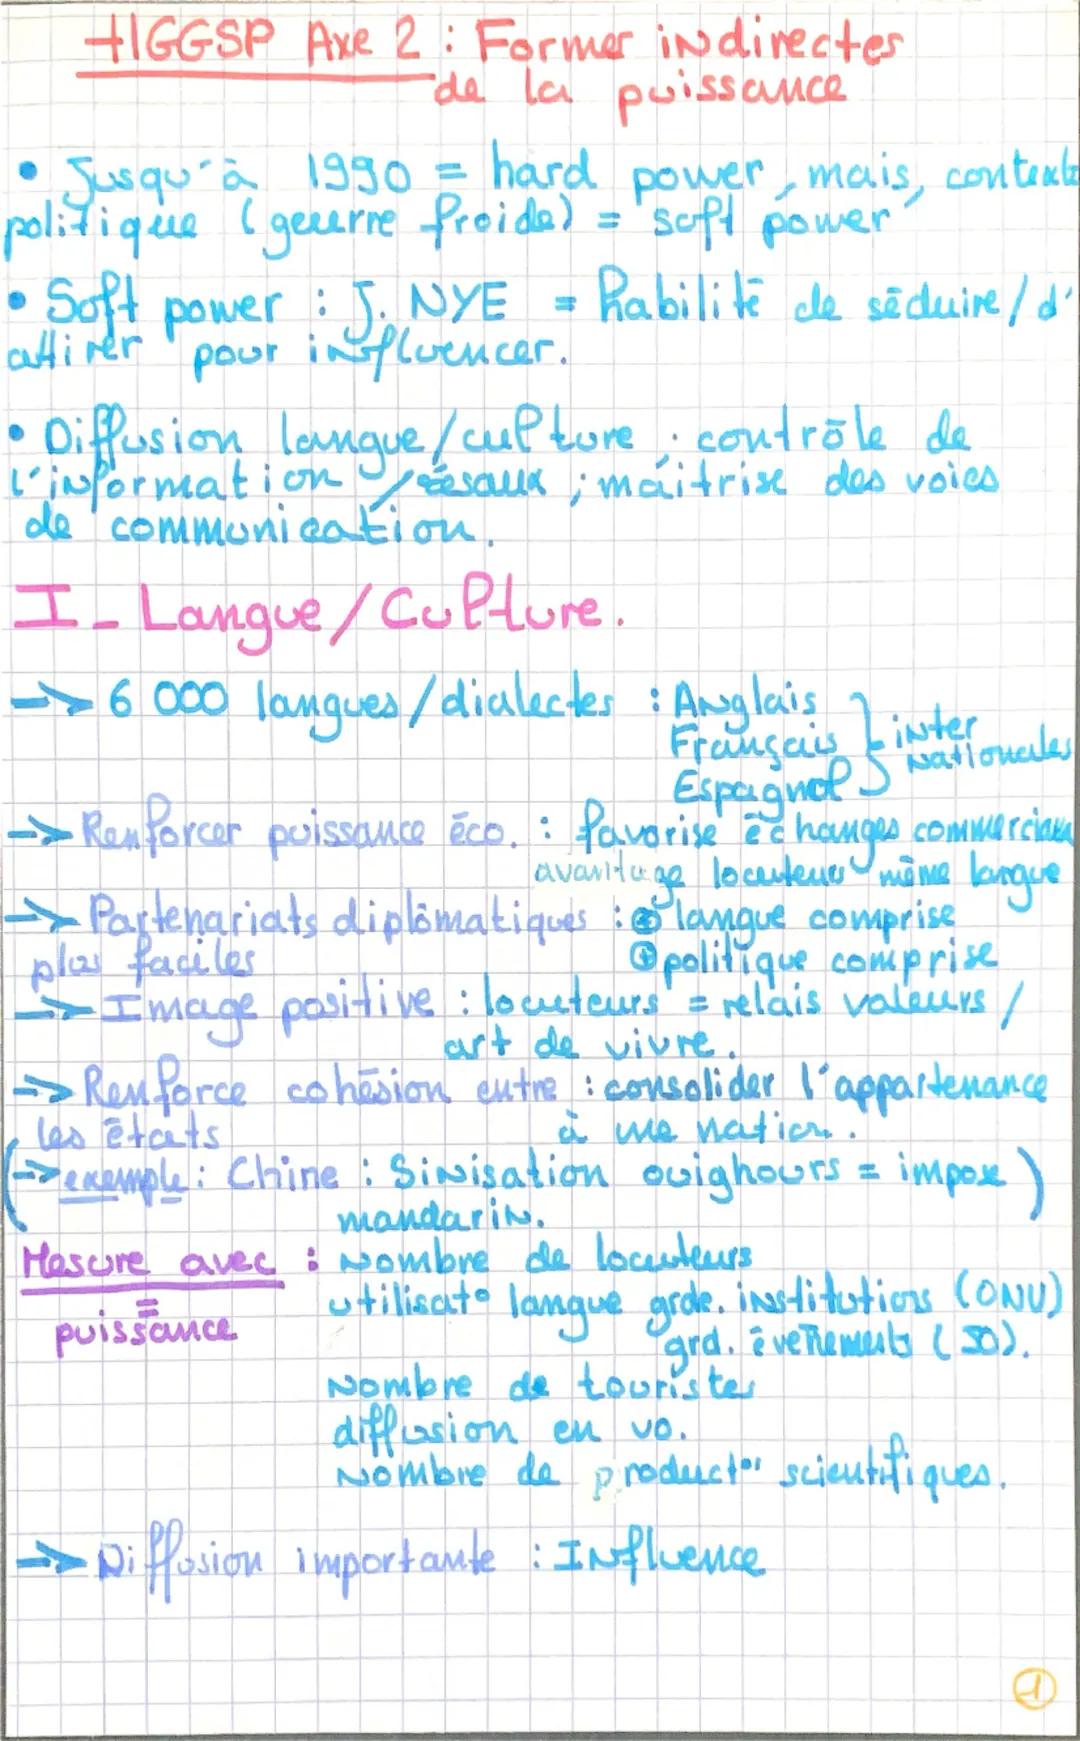 HGGSP Axe 2 : Former indirectes
de la puissance
• Jusqu'à 1990 = hard power, mais, contexte
politique (geurre froide) = soft power
• Soft power : J. NYE = habilité de séduire/d'
attirer pour influencer.
• Diffusion langue/culture ; contrôle de
l'information / résaux ; maîtrise des voies
de communication.
I - Langue/Culture.
-> 6 000 langues/dialectes : Anglais
Français } inter
nationales
Espagnol
-> Renforcer puissance éco. : favorise échanges commerciaux
avantage locuteur même langue
-> Partenariats diplômatiques : ⊕ langue comprise
plus faciles ⊕ politique comprise
-> Image positive : locuteurs = relais valeurs /
art de vivre.
-> Renforce cohésion entre : consolider l'appartenance
les états à une nation.
(-> exemple : Chine : Sinisation ouighours = impose )
mandarin.
Mesure avec : Nombre de locuteurs
= utilisat° langue grde. institutions (ONU)
puissance grd. évenements (JO).
Nombre de touristes
diffusion en vo.
Nombre de product° scientifiques.
-> Diffusion importante : Influence
1